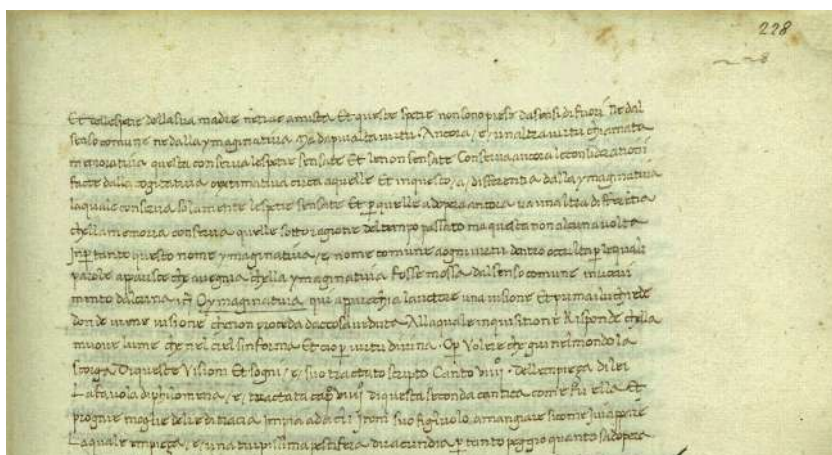 228
228
Et dellespetie della sua madre netrae amista Et queste spetie non sono prese dasensi di fuori Ne dal
senso comune ne dalla ymaginativa Ma da piu alta virtu. Ancora /e/ unaltra virtu chiamata
memorativa questa conserva lespetie sensate Et le non sensate Conserva ancora le considerationi
facte dalla cogitativa extimativa circa aquelle Et inquesto /a/ differentia dalla ymaginativa
laquale conserva solamente lespetie sensate Et ꝑ quelle adopera ancora va unaltra differētia
chella memoria conserva quelle sotto ragione del tempo passato ma questa non alcuna volta
ꝑ tanto questo nome ymaginativa /e/ nome comune aogni virtu dentro occulta ꝑ lequali
parole apparisce che avegna chella ymaginativa fosse mossa dal senso comune
mento dalcuna O ymaginativa qui apparechia lauctore una visione Et prima luchiede
donde viene visione che non proceda dacosa veduta Allaquale inquisitione Risponde chella
muove lume che nel ciel sinforma Et cio ꝑ virtu divina. O ꝑ Volere che giu nel mondo la
scorga Di queste Visioni Et sogni /e/ suo tractato scripto Canto viiij. Dellempieza di lei
La favola di philomena /e/ tractata capº viiij di questa seconda cantica come fu ella Et
progne moglie delre di tracia Impia
Laquale empieza /e/ una turpissima pestifera diracundia ꝑ tanto peggio quanto sadopera